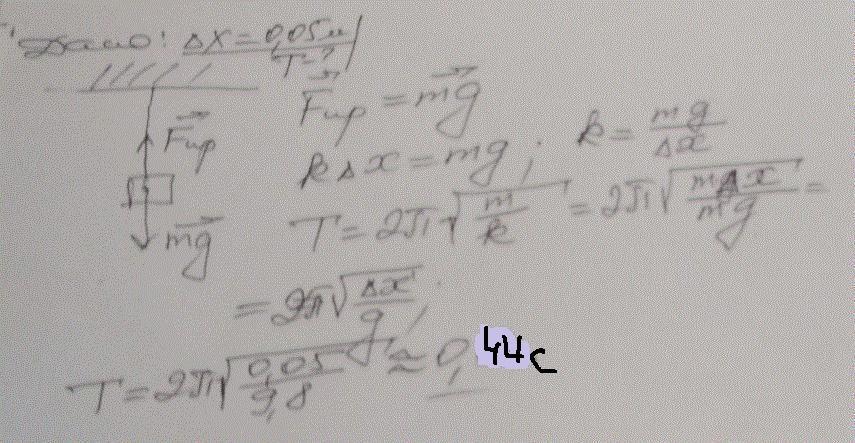 Дано: Δx = 0,05 м
T - ?
F⃗упр = m⃗g
F⃗упр
kΔx = mg; k = mg/Δx
m⃗g
T = 2π√(m/k) = 2π√(mΔx/mg) =
= 2π√(Δx/g);
T = 2π√(0,05/9,8) ≈ 0,44 с